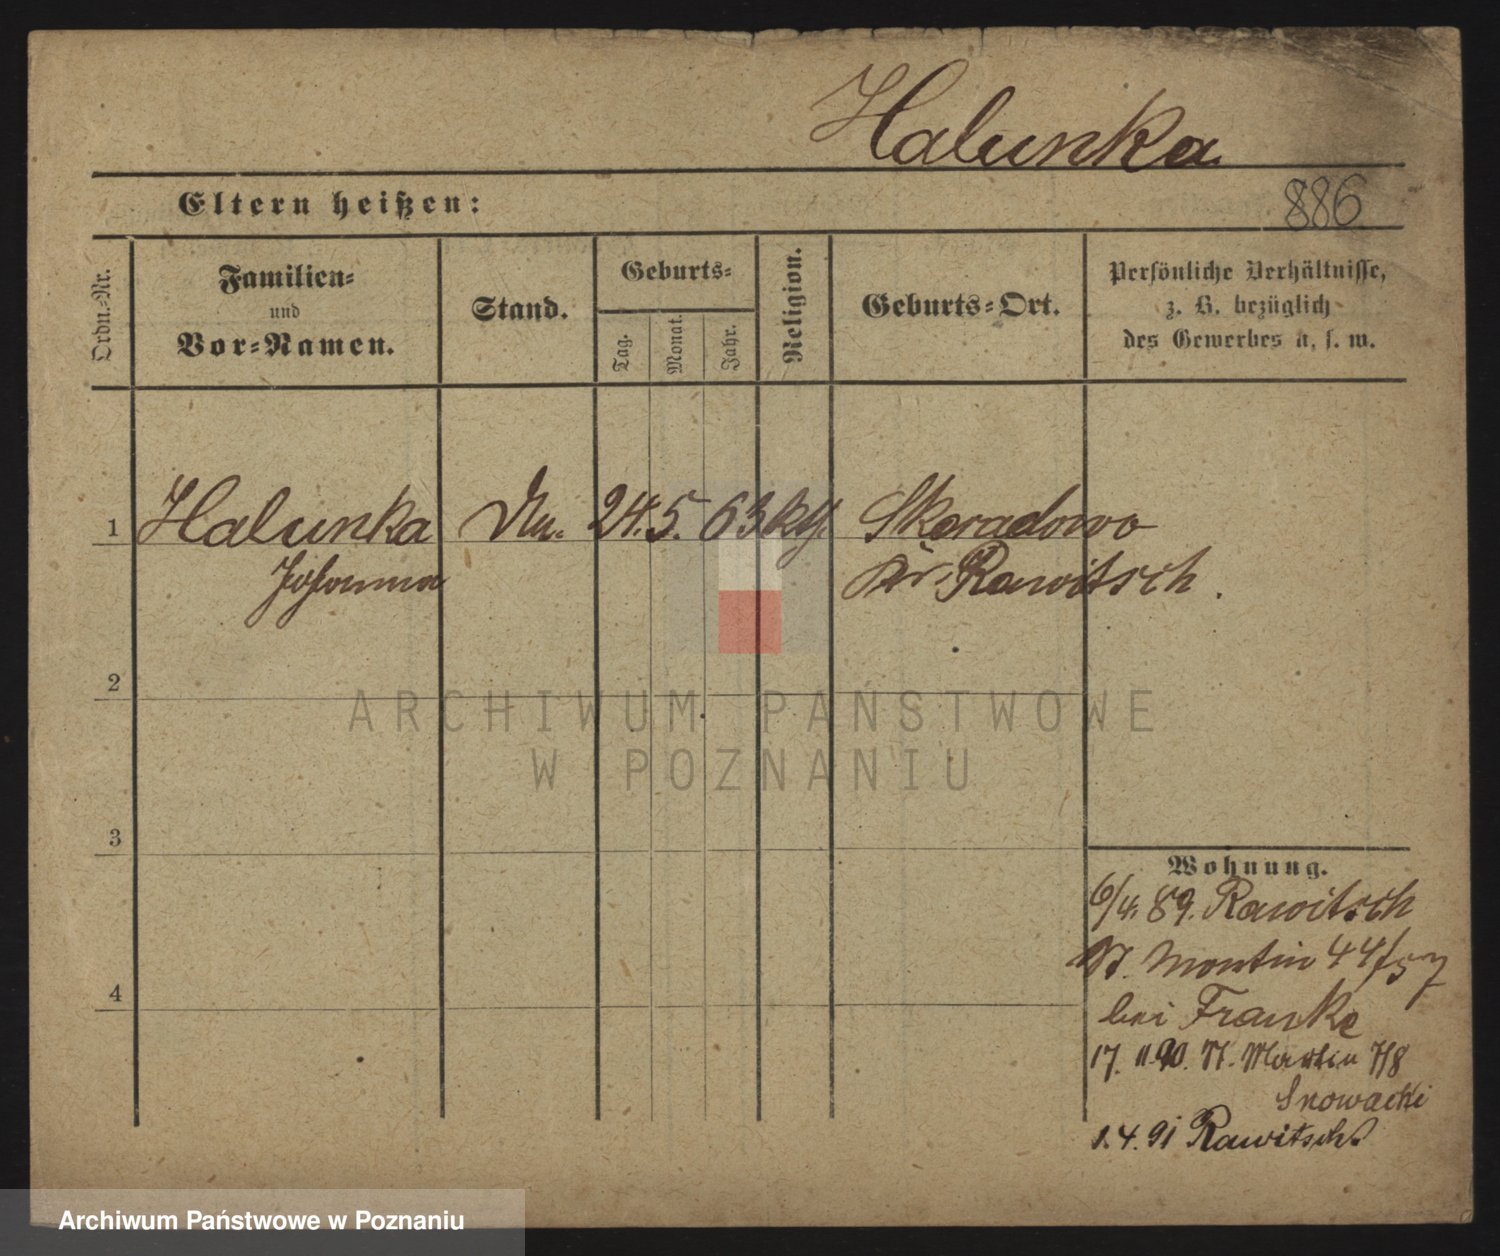 Halunka
Eltern heißen:
886
Ordn.-Nr.
Familien-
und
Vor-Namen.
Stand.
Geburts-
Tag.
Monat.
Jahr.
Religion.
Geburts-Ort.
Persönliche Verhältnisse,
z. B. bezüglich
des Gewerbes u. s. w.
1 Halunka 24. 5. 63 Skoradowo
Johanna Kr. Rawitsch.
2
ARCHIWUM PAŃSTWOWE
W POZNANIU
3
Wohnung.
6/4. 89. Rawitsch
St. Martin 44/57
4
bei Franke
17. 11. 90. St. Martin 7/8
Snowacki
1. 4. 91 Rawitsch
Archiwum Państwowe w Poznaniu